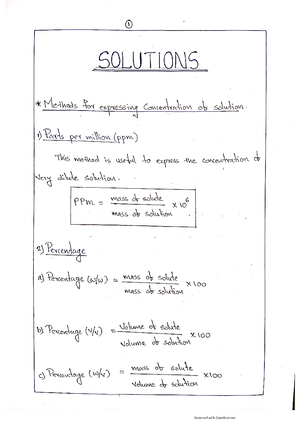 ①
SOLUTIONS
* Methods for expressing Concentration of solution.
1) Parts per million (ppm)
This method is useful to express the concentration of
very dilute solution.
PPM = mass of solute / mass of solution × 10⁶
2) Percentage
a) Percentage (w/w) = mass of solute / mass of solution × 100
b) Percentage (V/V) = Volume of solute / Volume of solution × 100
c) Percentage (w/v) = mass of solute / Volume of solution × 100
Scanned with CamScanner